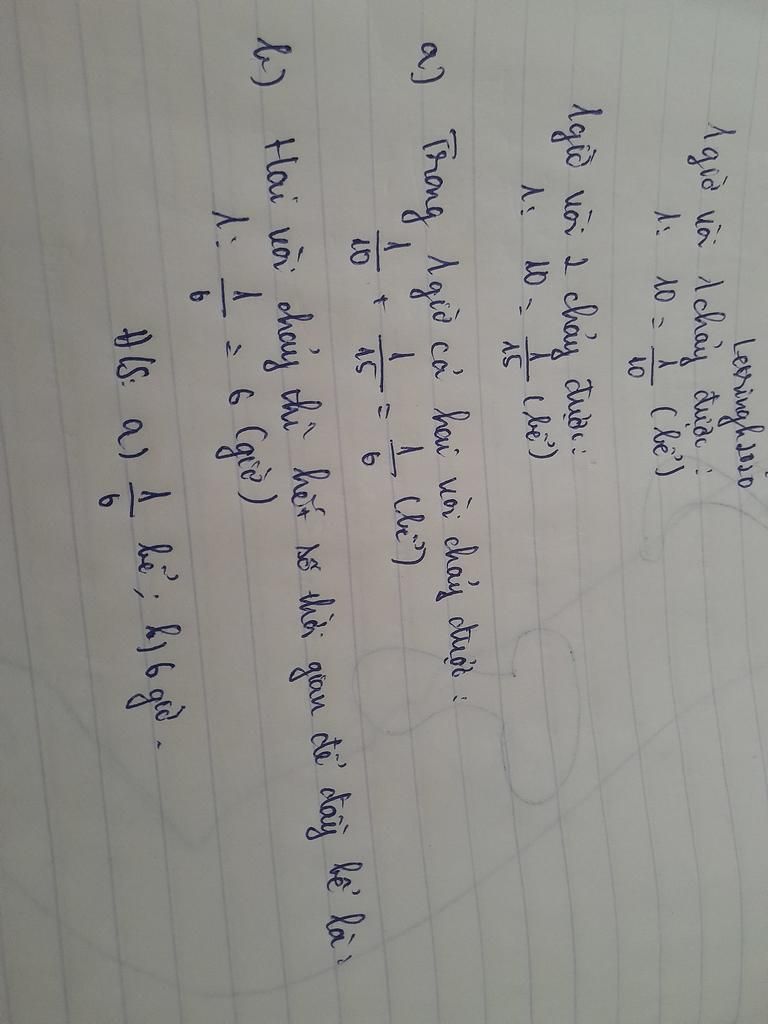 Lessingh2020
1 giờ vòi 1 chảy được:
1: 10 = 1/10 (bể)
1 giờ vòi 2 chảy được:
1: 10 = 1/15 (bể)
a) Trong 1 giờ cả hai vòi chảy được:
1/10 + 1/15 = 1/6 (bể)
b) Hai vòi chảy thì hết số thời gian để đầy bể là:
1: 1/6 = 6 (giờ)
Đ/S: a) 1/6 bể; b) 6 giờ.